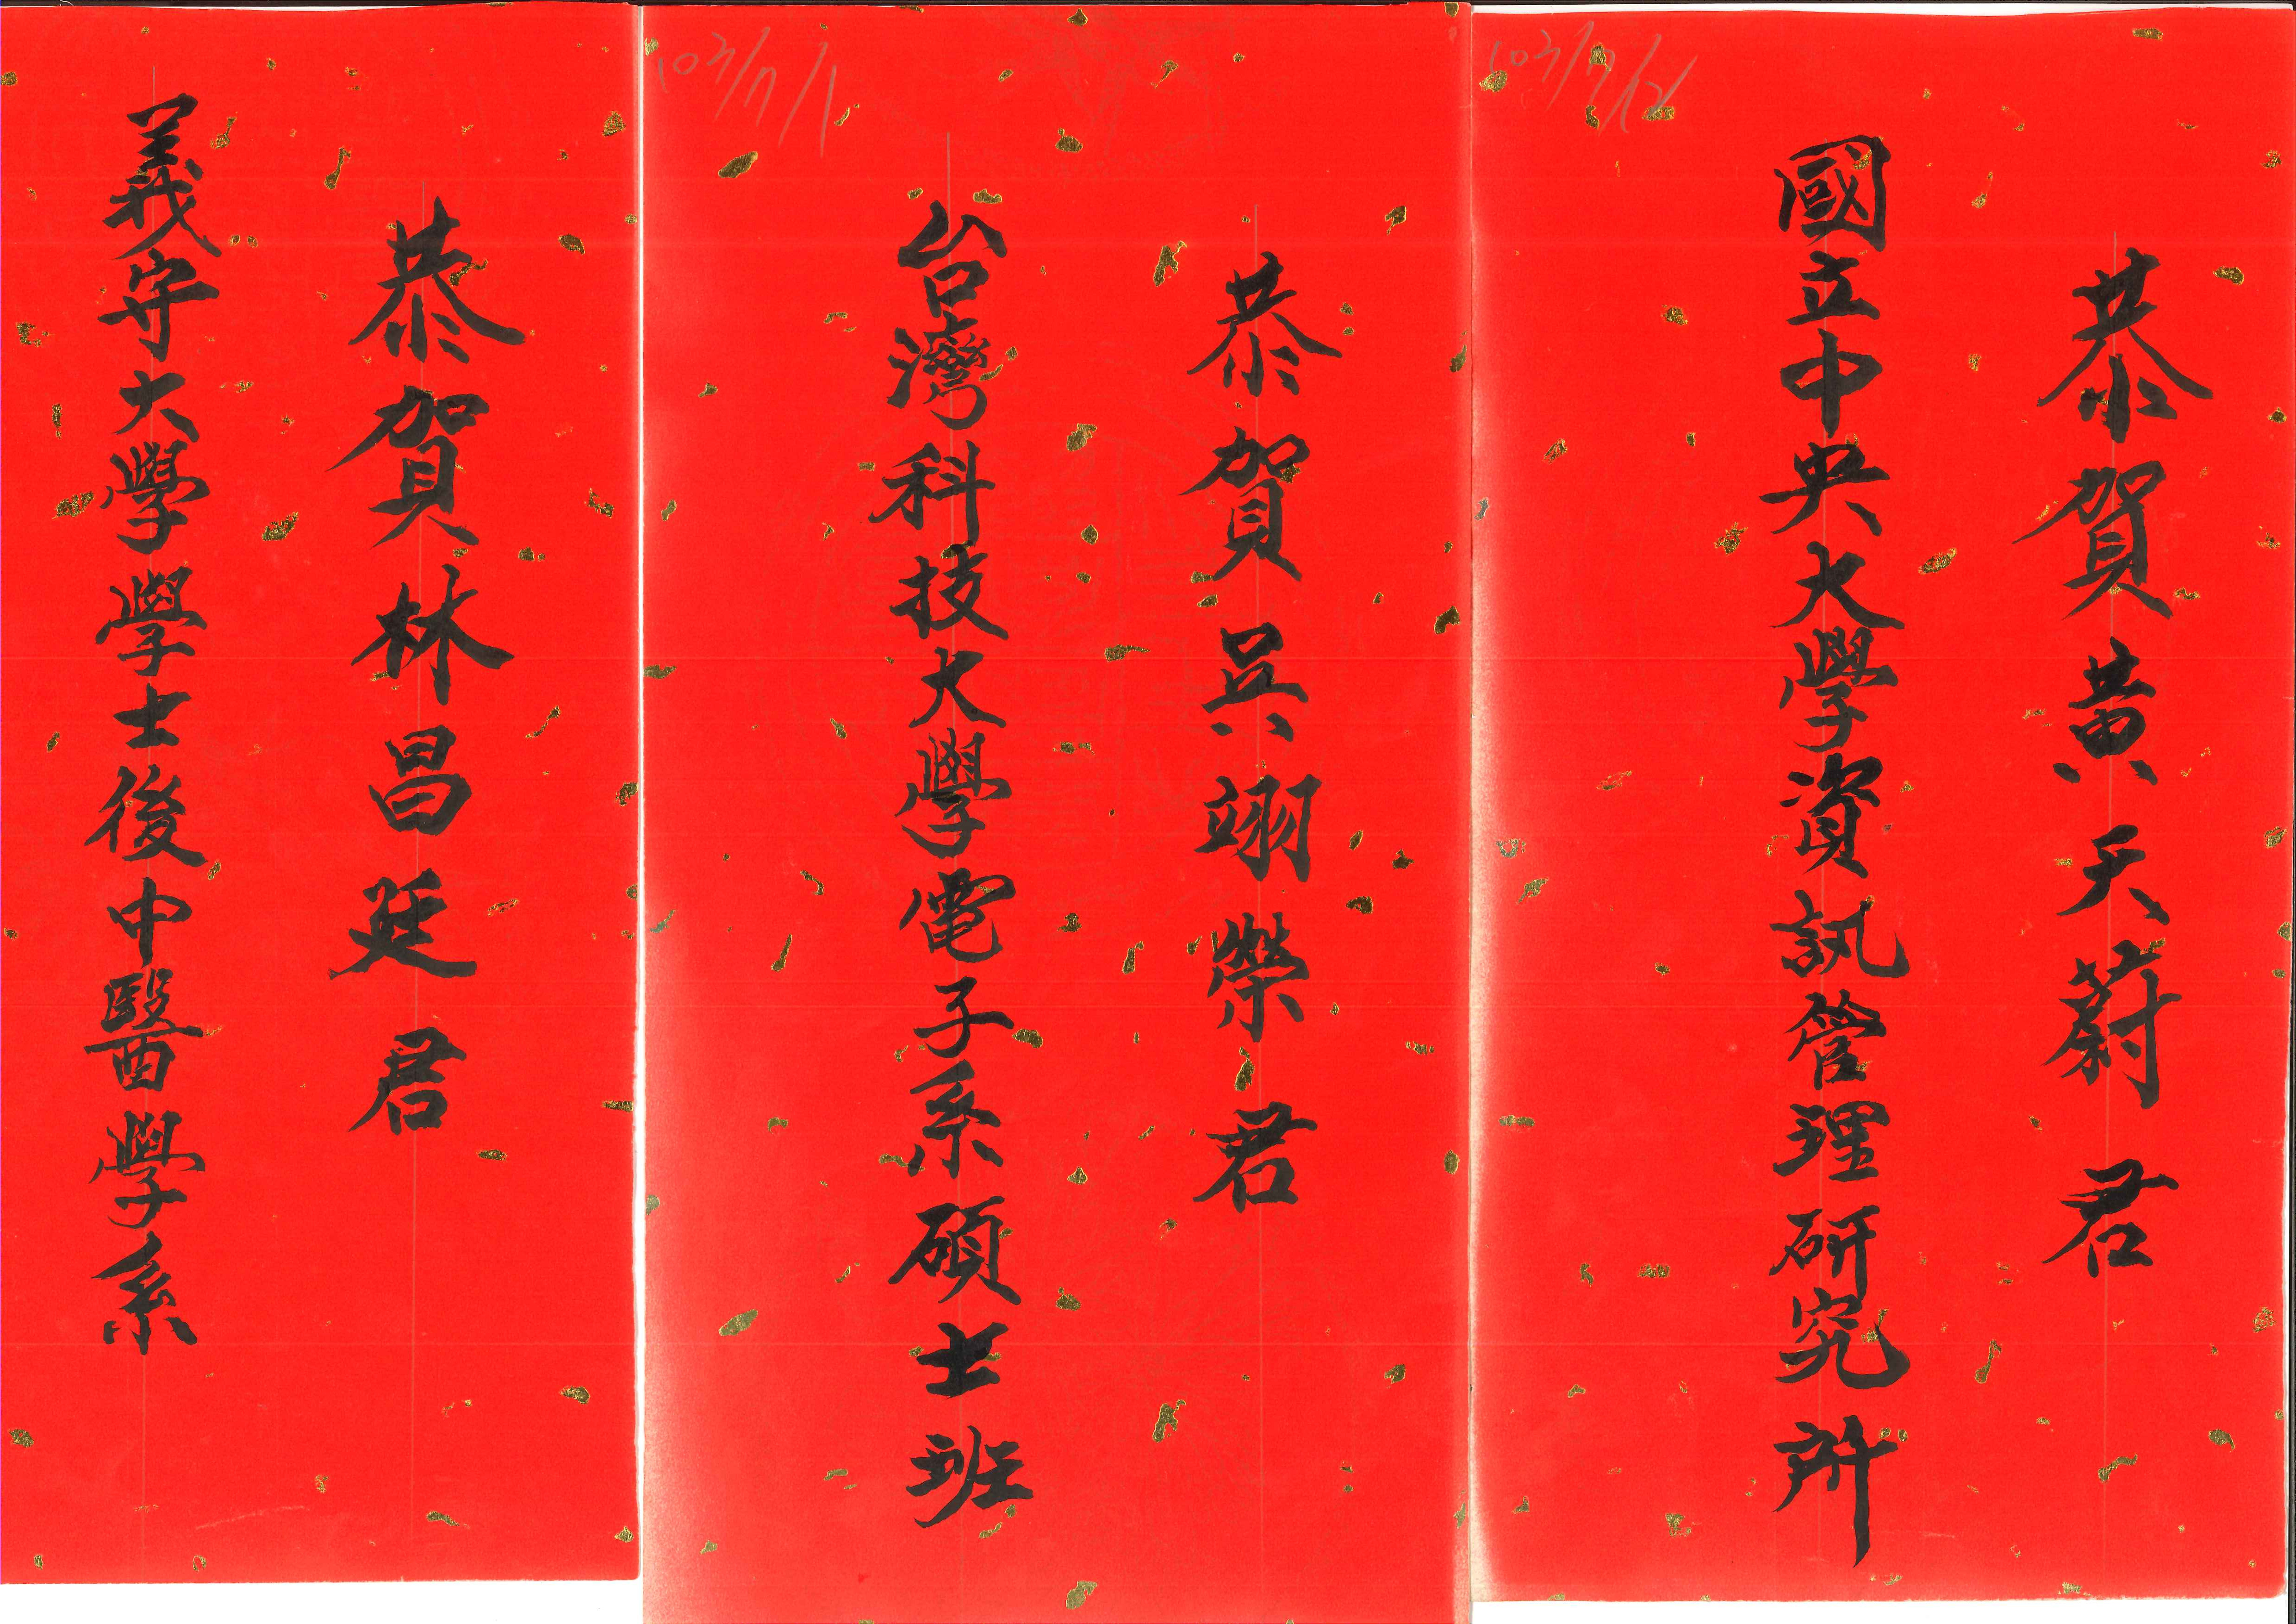 103/7/12
恭賀黃天蔚君
國立中央大學資訊管理研究所
103/7/1
恭賀吳翊榮君
台灣科技大學電子系碩士班
恭賀林昌廷君
義守大學學士後中醫學系